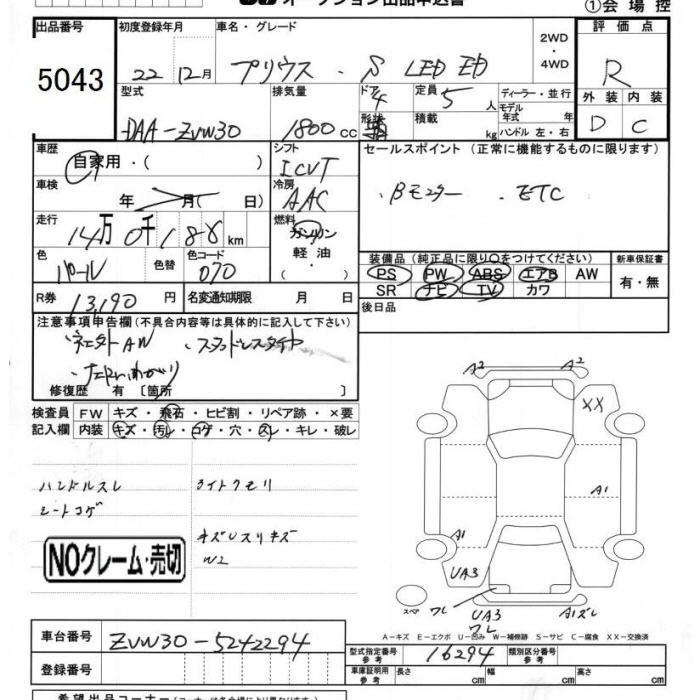 オークション出品申込書 ①会場控
出品番号 初度登録年月 車名・グレード 評価点
5043 22年12月 プリウス・S LED 2WD・4WD R
型式 排気量 ドア 定員 ディーラー・並行 外装 内装
DAA-ZVW30 1800cc 4 5人 モデル年式 年 D C
形状 積載 kg ハンドル 左・右
車歴 シフト セールスポイント（正常に機能するものに限ります）
自家用・( ) ICVT
車検 冷房 ・Bモニター ・ETC
年 月( 日) AAC
走行 燃料
14万0千188km ガソリン
軽油・
色 色替 色コード 装備品（純正品に限り○をつけてください） 新車保証書
パール 070 PS PW ABS エアB AW 有・無
SR ナビ TV カワ
R券 13,190円 名変通知期限 月 日 後日品
注意事項申告欄（不具合内容等は具体的に記入して下さい）
・スタッドレスタイヤ
修復歴 有 〔箇所 〕
検査員 FW キズ・飛石・ヒビ割・リペア跡・×要
記入欄 内装 キズ・汚レ・コゲ・穴・スレ・キレ・破レ
ハンドルスレ ライトクモリ
シートコゲ
キズUスリキズ
W2
NOクレーム・売切
A2 A2
XX
A1
A1
UA3
スペア ワレ UA3 A1ズレ
ワレ
A－キズ E－エクボ U－凹み W－補修跡 S－サビ C－腐食 XX－交換済
車台番号 ZVW30-5242294
型式指定番号 参考 16294 類別区分番号 参考
登録番号 車庫証明用 参考 長さ cm 幅 cm 高さ cm
希望出品コーナー